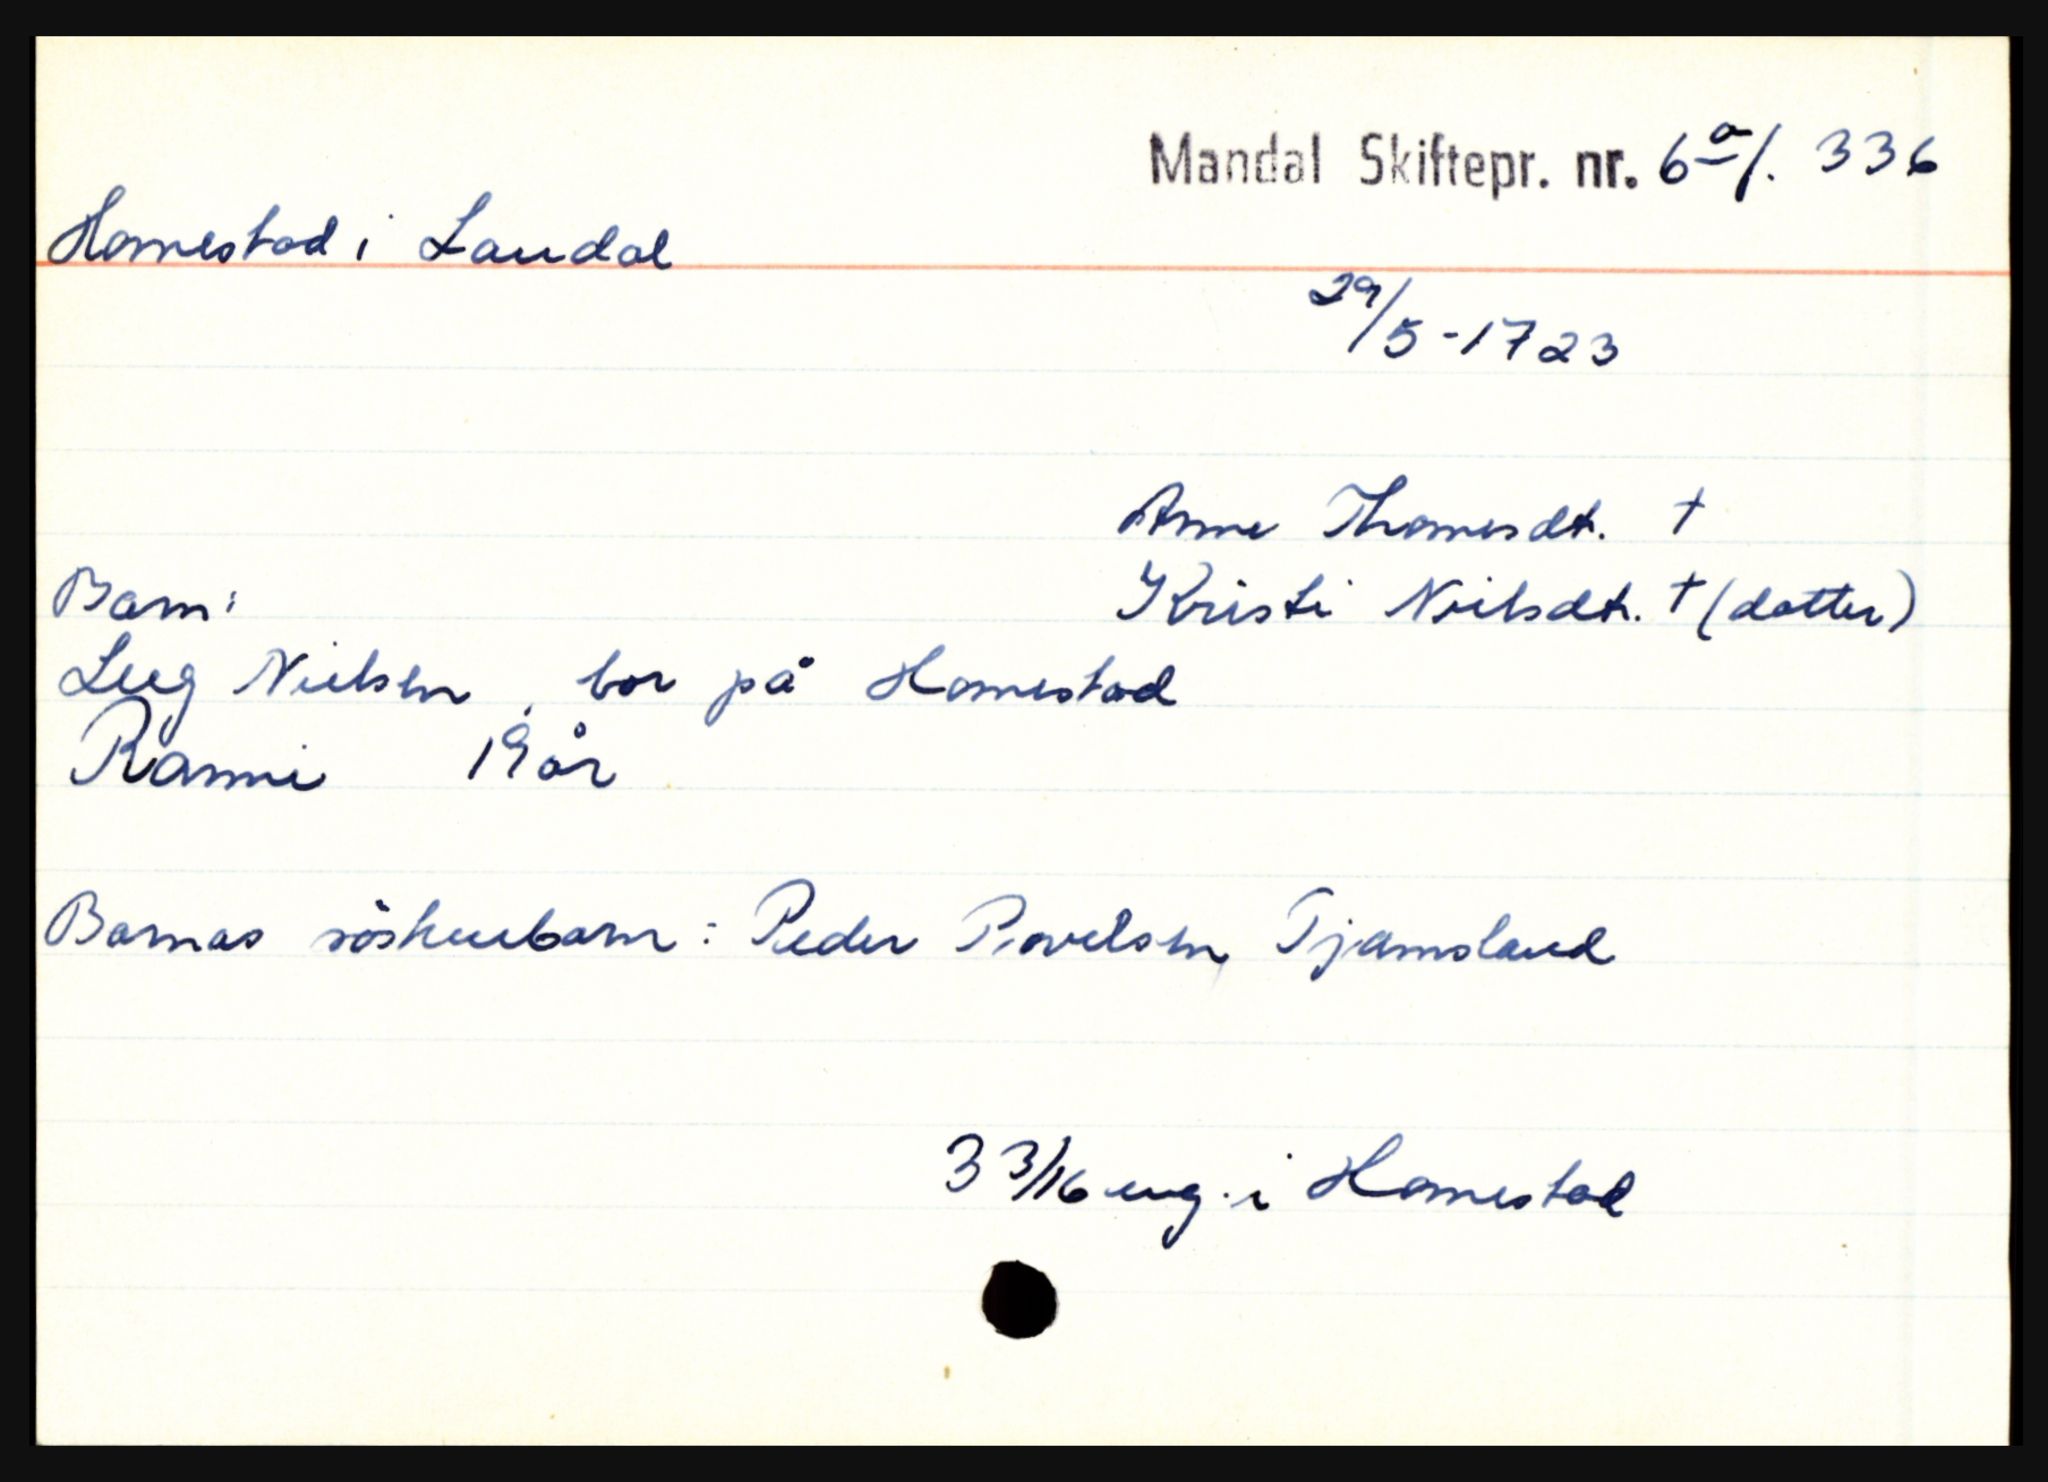 Mandal Skiftepr. nr. 6a f. 336
Homestad i Laudal
29/5-1723
Anne Thomesdt. †
Barn:
Kristi Neilsdt. † (datter)
Nielsen, bor på Homestad
Ranni 19 år
Barnas söskenbarn: Peder Povelsen, Tjamsland
3 3/16 eng. i Homestad